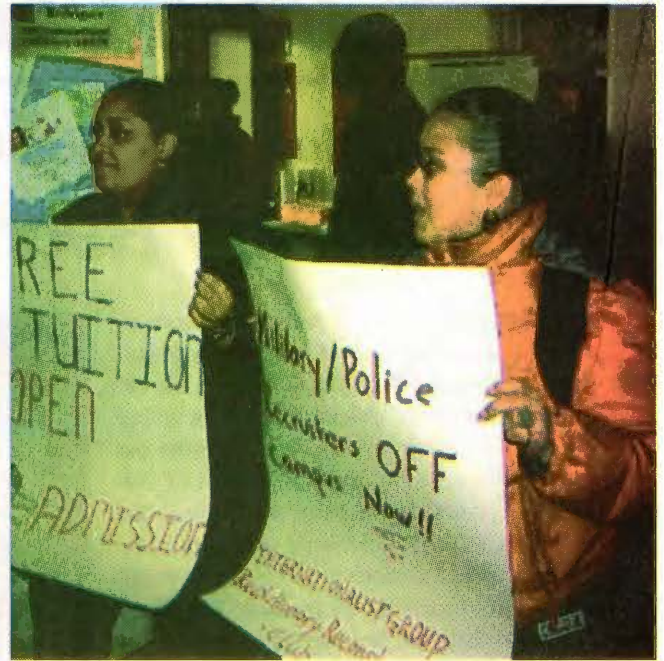 REE
TUITION
OPEN
ADMISSION
Military/Police
Recruiters OFF
Campus Now!!
INTERNATIONALIST GROUP
Revolutionary
club